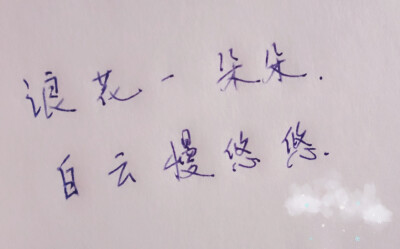 浪花一朵朵.
白云慢悠悠.